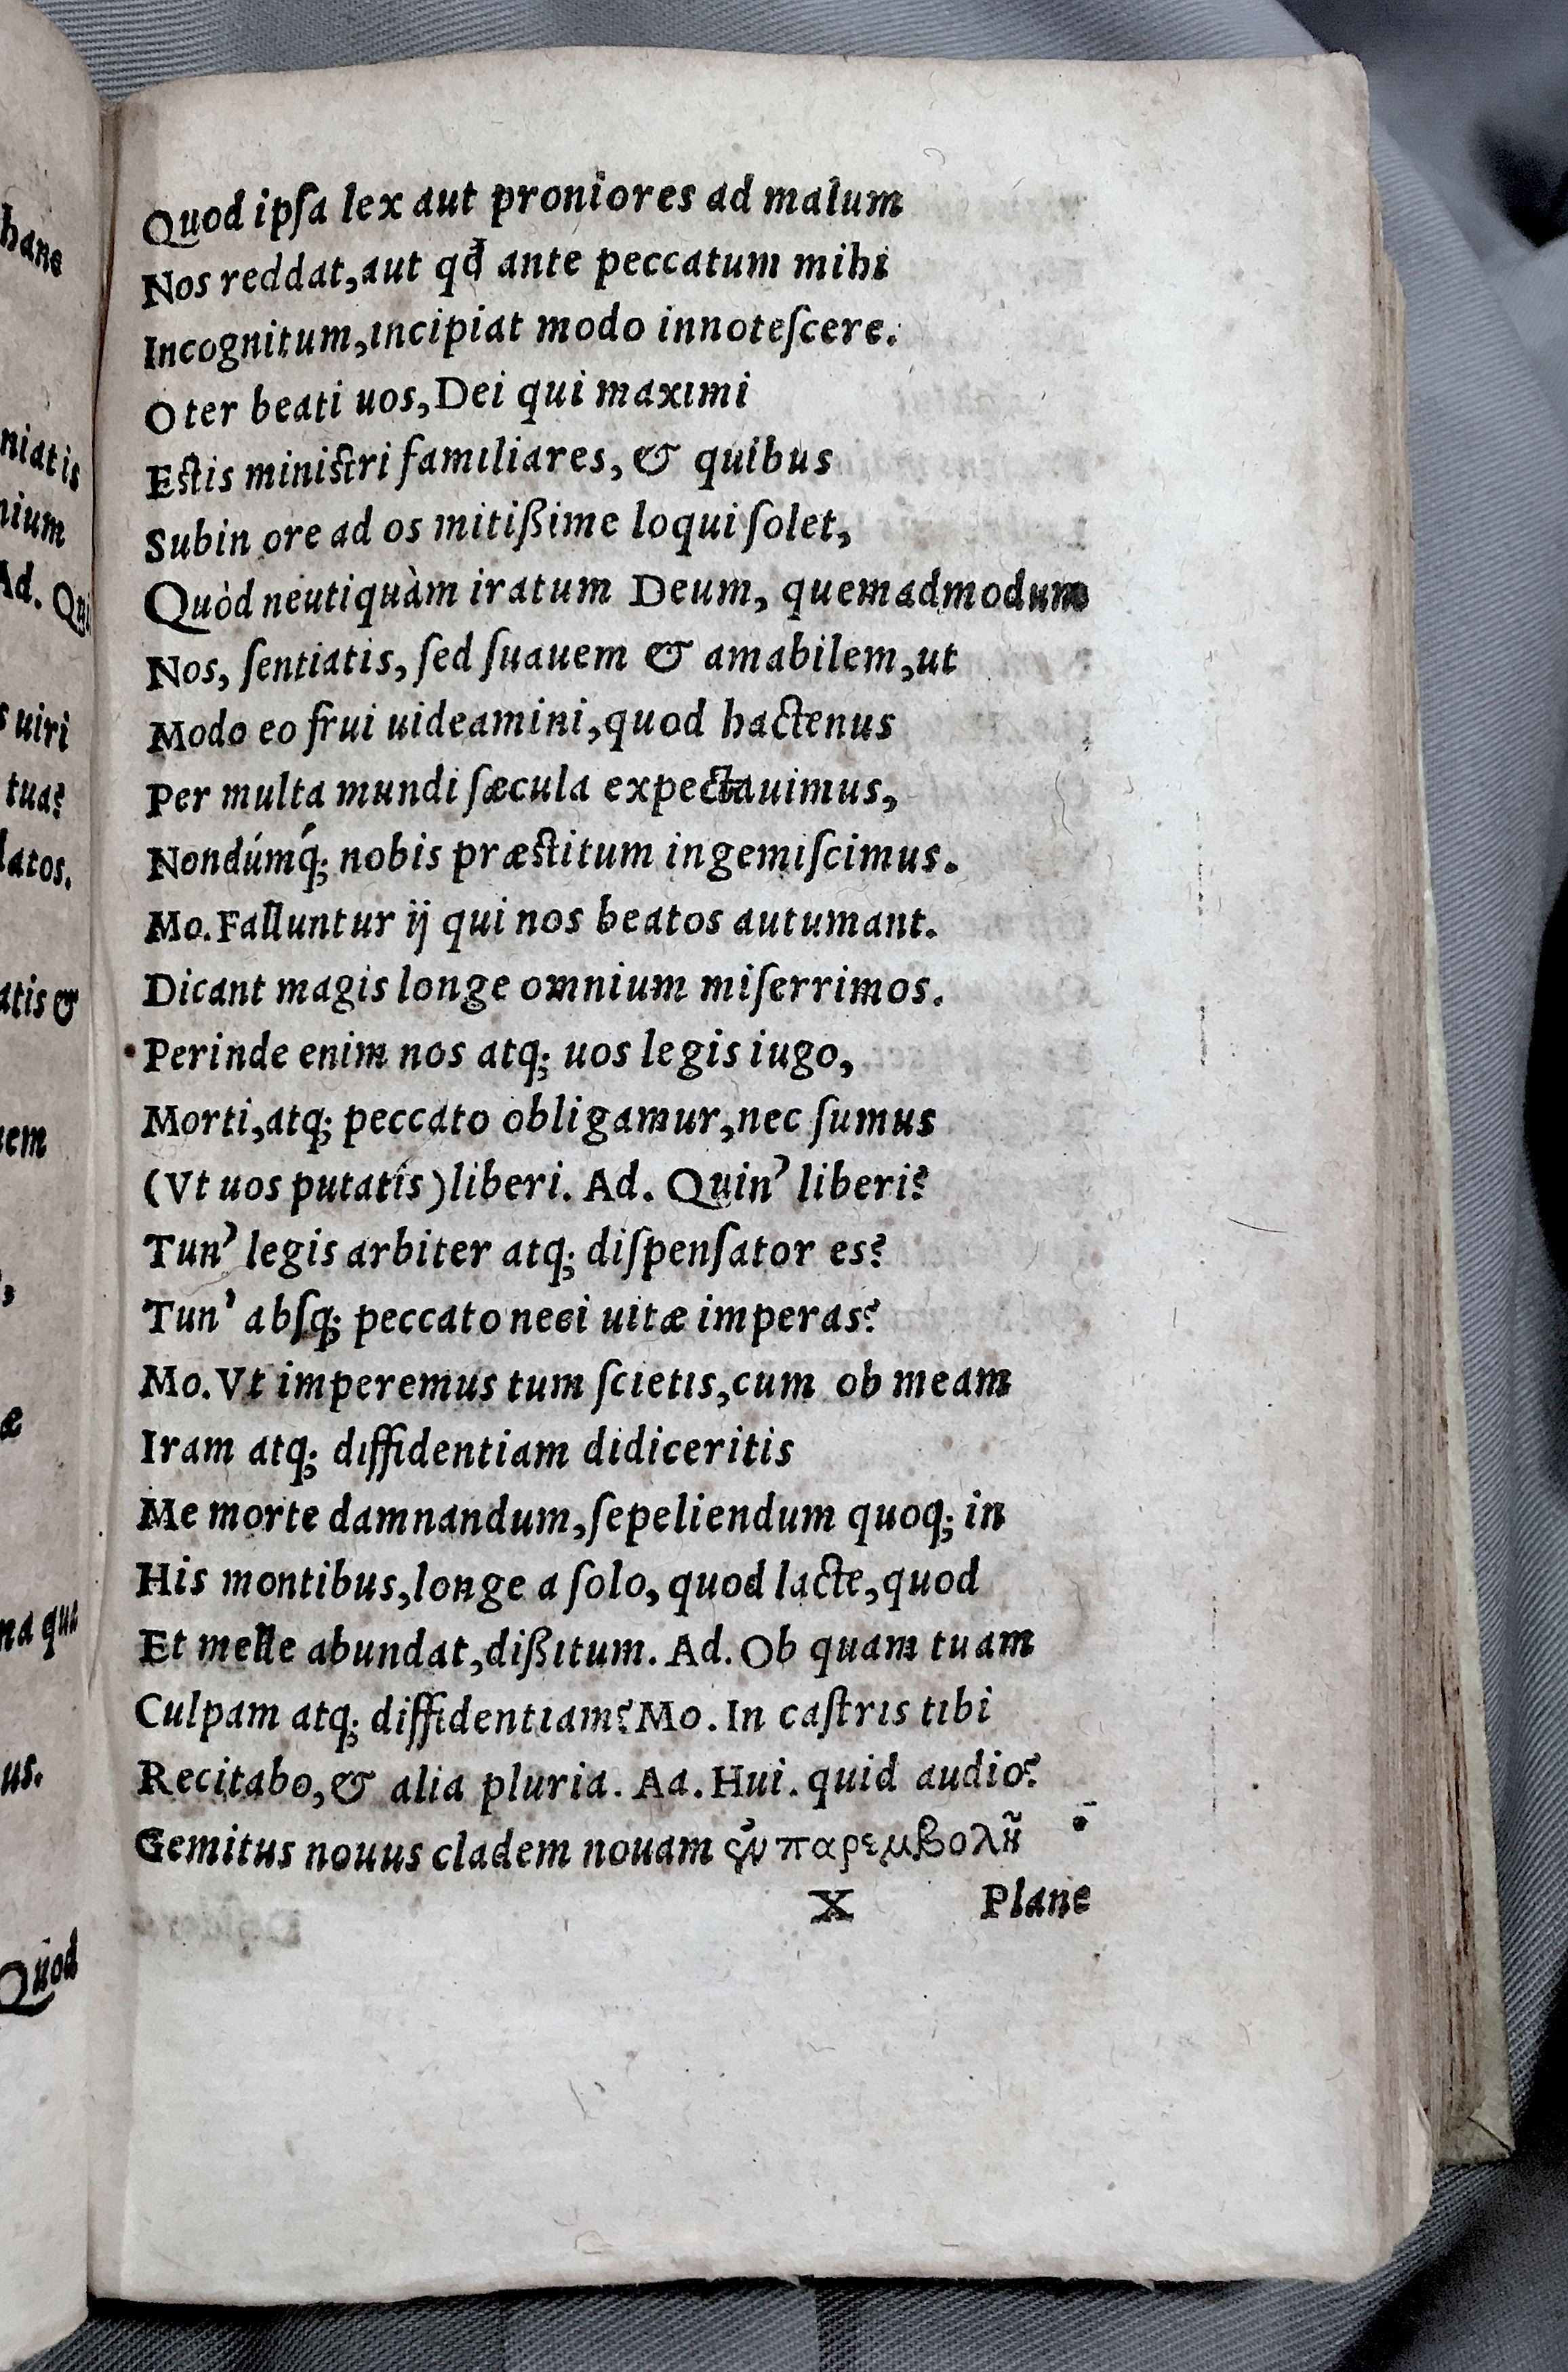 hanc
niatis
nium
Ad. Qui
s uiri
tua?
latos.
atis &
uem
æ
na qua
us.
Quod
Quod ipſa lex aut proniores ad malum
Nos reddat,aut qđ ante peccatum mihi
Incognitum,incipiat modo innoteſcere.
O ter beati uos,Dei qui maximi
Eſtis miniſtri familiares, & quibus
Subin ore ad os mitißime loqui ſolet,
Quòd neutiquàm iratum Deum, quemadmodum
Nos, ſentiatis, ſed ſuauem & amabilem,ut
Modo eo frui uideamini,quod hactenus
Per multa mundi ſæcula expectauimus,
Nondúmq́; nobis præſtitum ingemiſcimus.
Mo.Falluntur ij qui nos beatos autumant.
Dicant magis longe omnium miſerrimos.
Perinde enim nos atq; uos legis iugo,
Morti,atq; peccato obligamur,nec ſumus
(Vt uos putatis)liberi. Ad. Quin' liberi?
Tun' legis arbiter atq; diſpenſator es?
Tun' abſq; peccato neci uitæ imperas?
Mo.Vt imperemus tum ſcietis,cum ob meam
Iram atq; diffidentiam didiceritis
Me morte damnandum,ſepeliendum quoq; in
His montibus,longe a ſolo, quod lacte,quod
Et melle abundat,dißitum. Ad. Ob quam tuam
Culpam atq; diffidentiam?Mo. In caſtris tibi
Recitabo,& alia pluria. Ad. Hui. quid audio?
Gemitus nouus cladem nouam παρεμβολῆ
X Plane